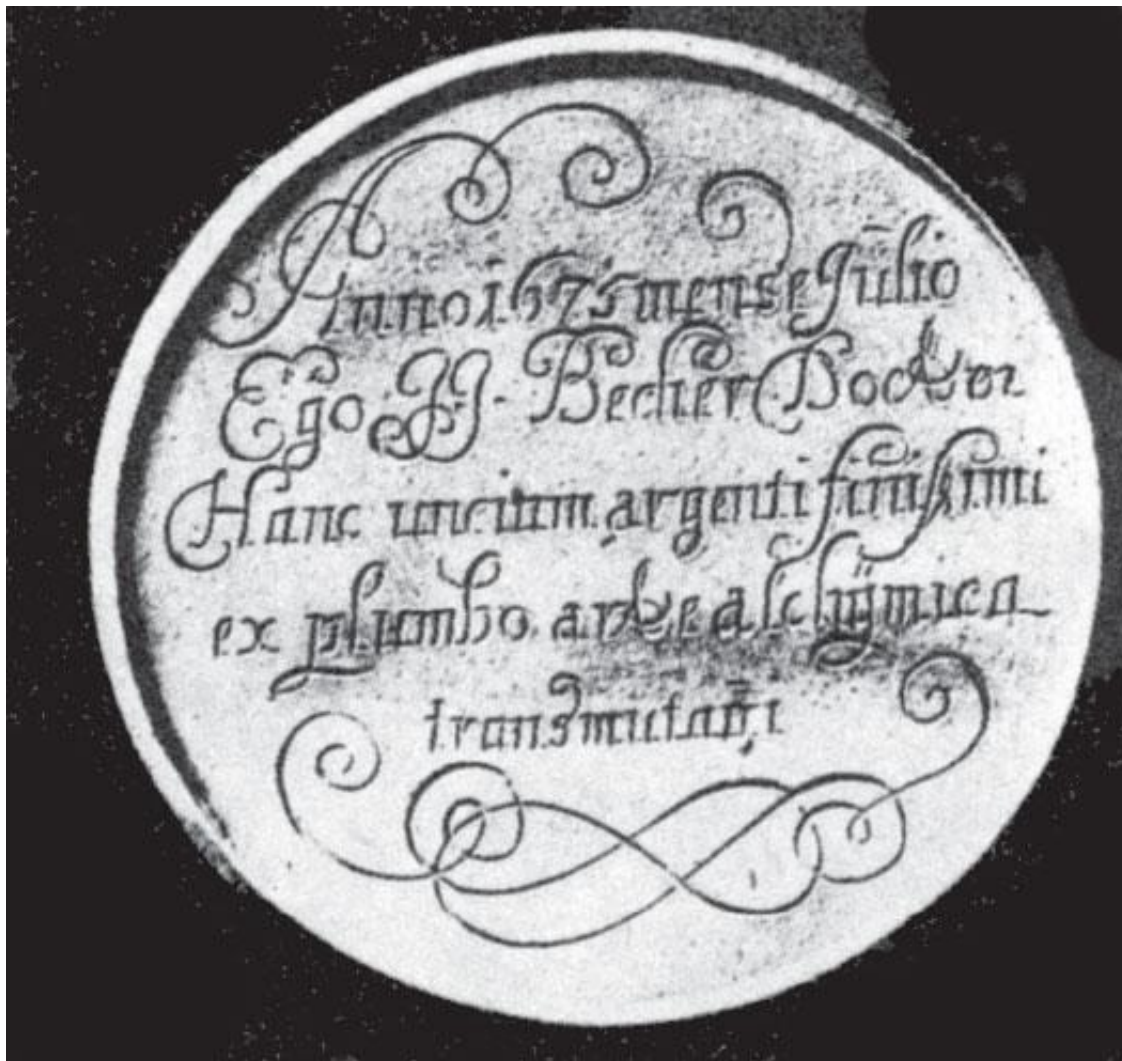 Anno 1675 mense Julio
Ego JJ. Becher Doctor
Hanc unciam argenti finissimi
ex plumbo arte alchymica
transmutavi